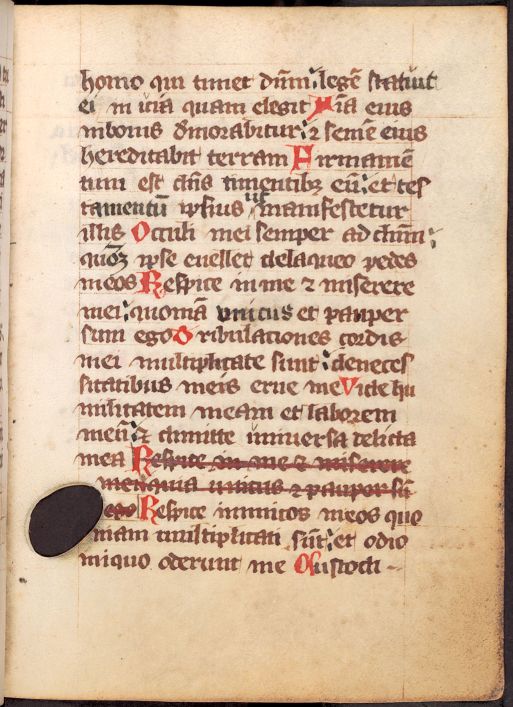 homo qui timet dūm legē statuit
ei in uia quam elegit Aīa eius
inbonis dmorabitur ⁊ semē eius
hereditabit terram Firmamē
tum est dn̄s timentibꝫ eū et tes
tamentū ipsius ut manifestetur
illis Oculi mei semper ad dn̄m
quo ipse euellet delaqueo pedes
meos Respice in me ⁊ miserere
mei quoniā unicus et pauper
sum ego Tribulationes cordis
mei multiplicate sunt deneces
sitatibus meis erue me Vide hu
militatem meam et laborem
meū ⁊ dimitte uniuersa delicta
mea Respice in me ⁊ miserere
mei quia unicus ⁊ pauper sū
ego Respice inimicos meos quo
niam multiplicati sūt et odio
iniquo oderunt me Custodi